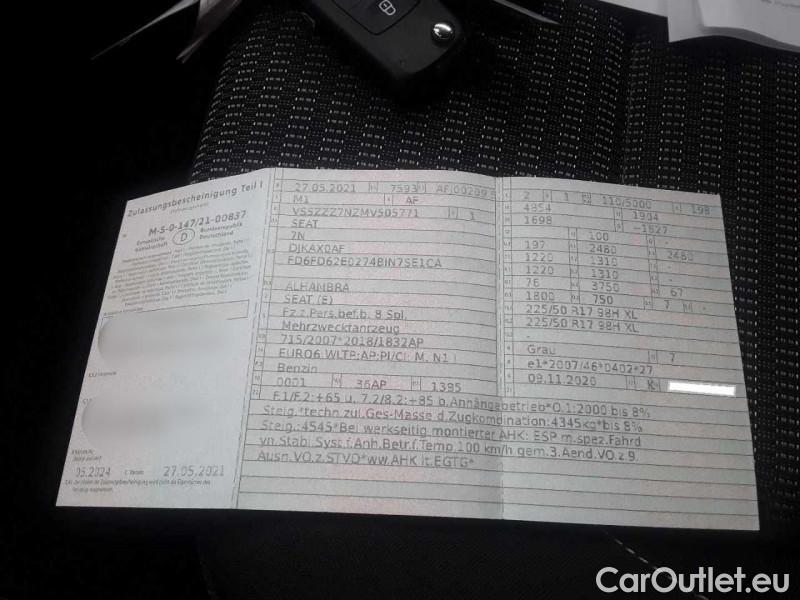 Zulassungsbescheinigung Teil I
M-S-0-147/21-00837
Europäische Gemeinschaft
D
Bundesrepublik Deutschland
05.2024
27.05.2021
27.05.2021 7593
M1 AF
VSSZZZ7NZMV505771 1
SEAT
7N
DJKAX0AF
FD6FD62E0274BIN7SE1CA
ALHAMBRA
SEAT (E)
Fz.z.Pers.bef.b. 8 Spl.
Mehrzwecktahrzeug
715/2007*2018/1832AP
EURO6;WLTP;AP;PI/CI; M, N1 I
Benzin
0001 36AP 1395
2 1 110/5000 198
4854 1904
1698 -1827
100
197 2480 2480
1220 1310
1220 1310
76 3750 67
1800 750 7 -
225/50 R17 98H XL
225/50 R17 98H XL
-
Grau 7
e1*2007/46*0402*27
09.11.2020 K
F.1/F.2:+65 u. 7.2/8.2:+85 b.Anhängebetrieb*O.1:2000 bis 8%
Steig.*techn.zul.Ges-Masse d.Zugkombination:4345kg*bis 8%
Steig.:4545*Bei werkseitig montierter AHK: ESP m.spez.Fahrd
yn.Stabi.Syst.f.Anh.Betr.f.Temp.100 km/h gem.3.Aend.VO.z.9.
Ausn.VO.z.STVO*ww.AHK lt.EGTG*
CarOutlet.eu